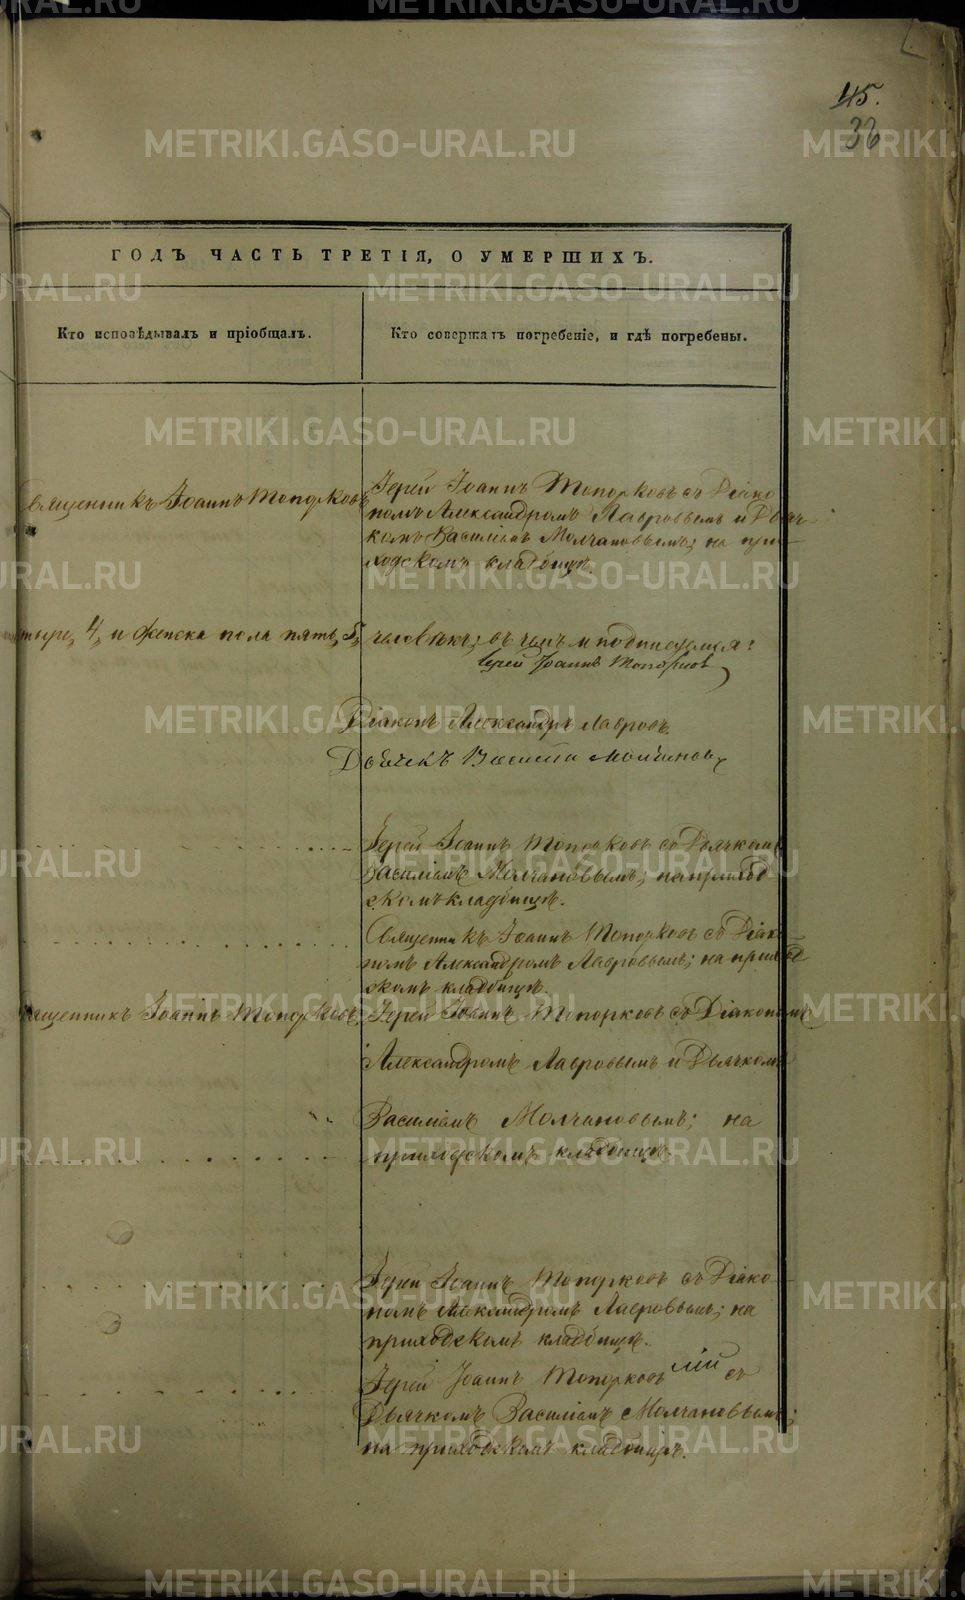 45.
36
ГОДЪ ЧАСТЬ ТРЕТІЯ, О УМЕРШИХЪ.
Кто исповѣдывалъ и пріобщалъ.
Кто совершалъ погребеніе, и гдѣ погребены.
Священникъ Іоаннъ Топорковъ
Іерей Іоаннъ Топорковъ съ Діако
номъ Александромъ Лавровымъ и Дьяч
комъ Василіемъ Молчановымъ; на при
ходскомъ кладбищѣ.
тыре, 4, и женска пола пять, 5, человѣкъ; въ чемъ и подписуемся:
Іерей Іоаннъ Топорковъ
Діаконъ Александръ Лавровъ.
Дьячекъ Василій Молчановъ
Іерей Іоаннъ Топорковъ съ Дьячкомъ
Василіемъ Молчановымъ; на приход
скомъ кладбищѣ.
Священникъ Іоаннъ Топорковъ съ Діако
номъ Александромъ Лавровымъ; на приход
скомъ кладбищѣ.
ященникъ Іоаннъ Топорковъ
Іерей Іоаннъ Топорковъ съ Діакономъ
Александромъ Лавровымъ и Дьячкомъ
Василіемъ Молчановымъ; на
приходскомъ кладбищѣ.
Іерей Іоаннъ Топорковъ съ Діако
номъ Александромъ Лавровымъ; на
приходскомъ кладбищѣ.
Іерей Іоаннъ Топорковъ съ
Дьячкомъ Василіемъ Молчановымъ;
на приходскомъ кладбищѣ.
METRIKI.GASO-URAL.RU